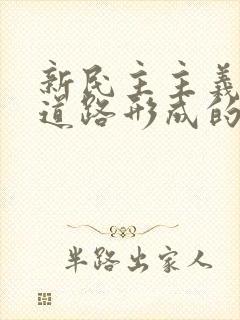 新民主主義
道路形成的
半路出家人